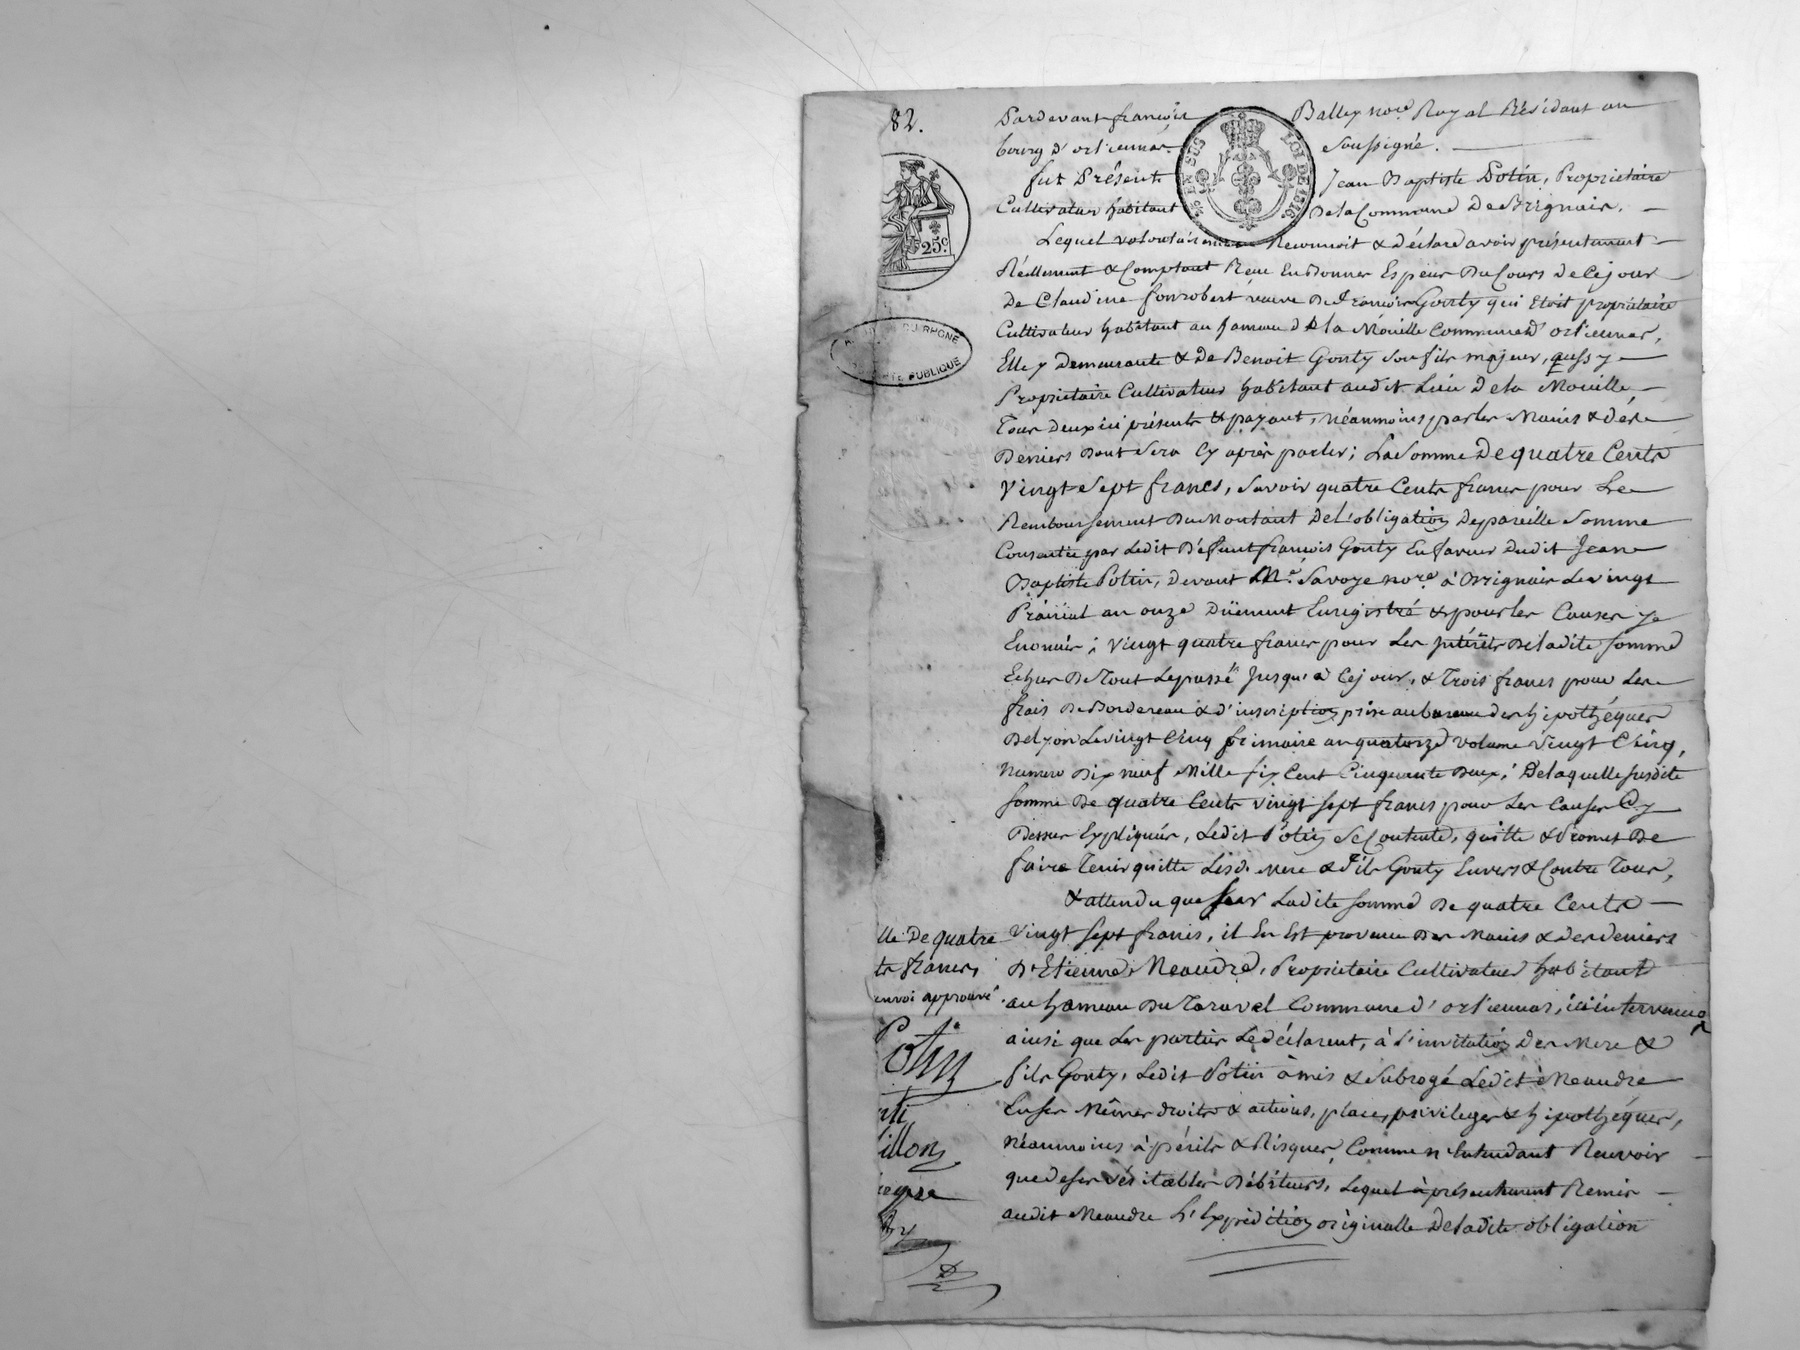 82.
Pardevant françois Balley no.re Royal Résidant au
bourg d'orliennas soussigné.
fut Présent Jean Baptiste Potin, Proprietaire
Cultivateur habitant De la Commune De Brignais.
Lequel volontairement Reconnoit & déclare avoir présentement
Réellement & Comptant Reçu En Bonnes Espèces Du Cours de Ce jour
De Claudine fonrobert veuve De François Gonty qui Etoit proprietaire
Cultivateur habitant au hameau De la Mouille Commune d'orliennas,
Elle y Demeurante & De Benoit Gonty son fils majeur, aussy
Proprietaire Cultivateur habitant audit Lieu De la Mouille,
Tous deux ici présents & payant, néanmoins par les Mains & des
Deniers Dont Sera Cy après parler; La Somme De quatre Cents
Vingt Sept francs, Savoir quatre Cents francs pour Le
Remboursement Du Montant De L'obligation De pareille Somme
Consentie par Ledit Défunt françois Gonty En faveur Dudit Jean
Baptiste Potin, Devant M.e Savoye no.re à Brignais Le vingt
Prairial an onze Düement Enregistré & pour les Causes y
Enoncées; Vingt quatre francs pour Les Intérêts De ladite somme
Echus De Tout Le passé Jusqu'à Ce jour, & Trois francs pour Les
frais De Bordereau & d'inscription prise au bureau des hipothéques
De Lyon Le vingt Cinq frimaire an quatorze volume Vingt Cinq,
Numero Dix neuf Mille six Cent Cinquante Deux; De laquelle susdite
somme De quatre Cents vingt sept francs pour Les Causes Cy
Dessus Expliquées, Ledit Potin Se Contente, quitte & Promet De
faire Tenir quitte Lesd. Mere & Fils Gonty Envers & Contre Tous,
& attendu que sur Ladite somme De quatre Cents
lle De quatre
ts francs,
envoi approuvé.
Potin
illon
Vingt sept francs, il En Est provenu Des Mains & des deniers
D'Etienne Meaudre, Proprietaire Cultivateur habitant
au hameau Du Taravel Commune d'orliennas, ici intervenu
ainsi que Les parties Le déclarent, à l'invitation Des Mere &
fils Gonty, Ledit Potin à mis & Subrogé Ledit Meaudre
En ses Mêmes droits & actions, place, privileges & hipothéques,
Néanmoins à périls & Risques, Comme n'Entendant Recevoir
que de ses véritables Débiteurs, Lequel à présentement Remis
audit Meaudre L'Expédition originalle De ladite obligation
25.c
LOI DE 1816
DU RHONE
PUBLIQUE